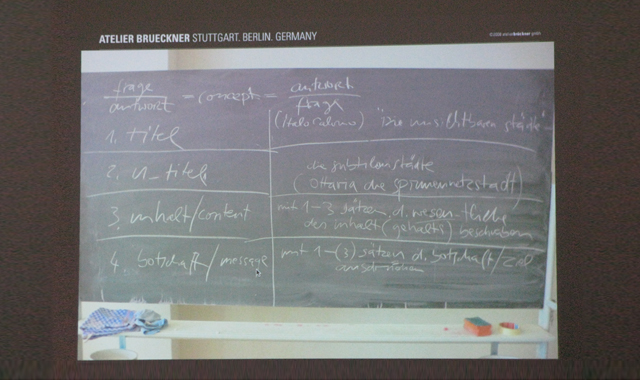 ATELIER BRUECKNER STUTTGART. BERLIN. GERMANY
frage / antwort = concept = antwort / frage
(Italo Calvino) "Die unsichtbaren städte"
1. titel
2. u_titel
die subtilen städte
(Ottavia die spinnennetzstadt)
3. inhalt/content
mit 1-3 sätzen d.
den inhalt (gehalts) beschreiben
4. botschaft/message
mit 1-(3) sätzen d. botschaft/ziel